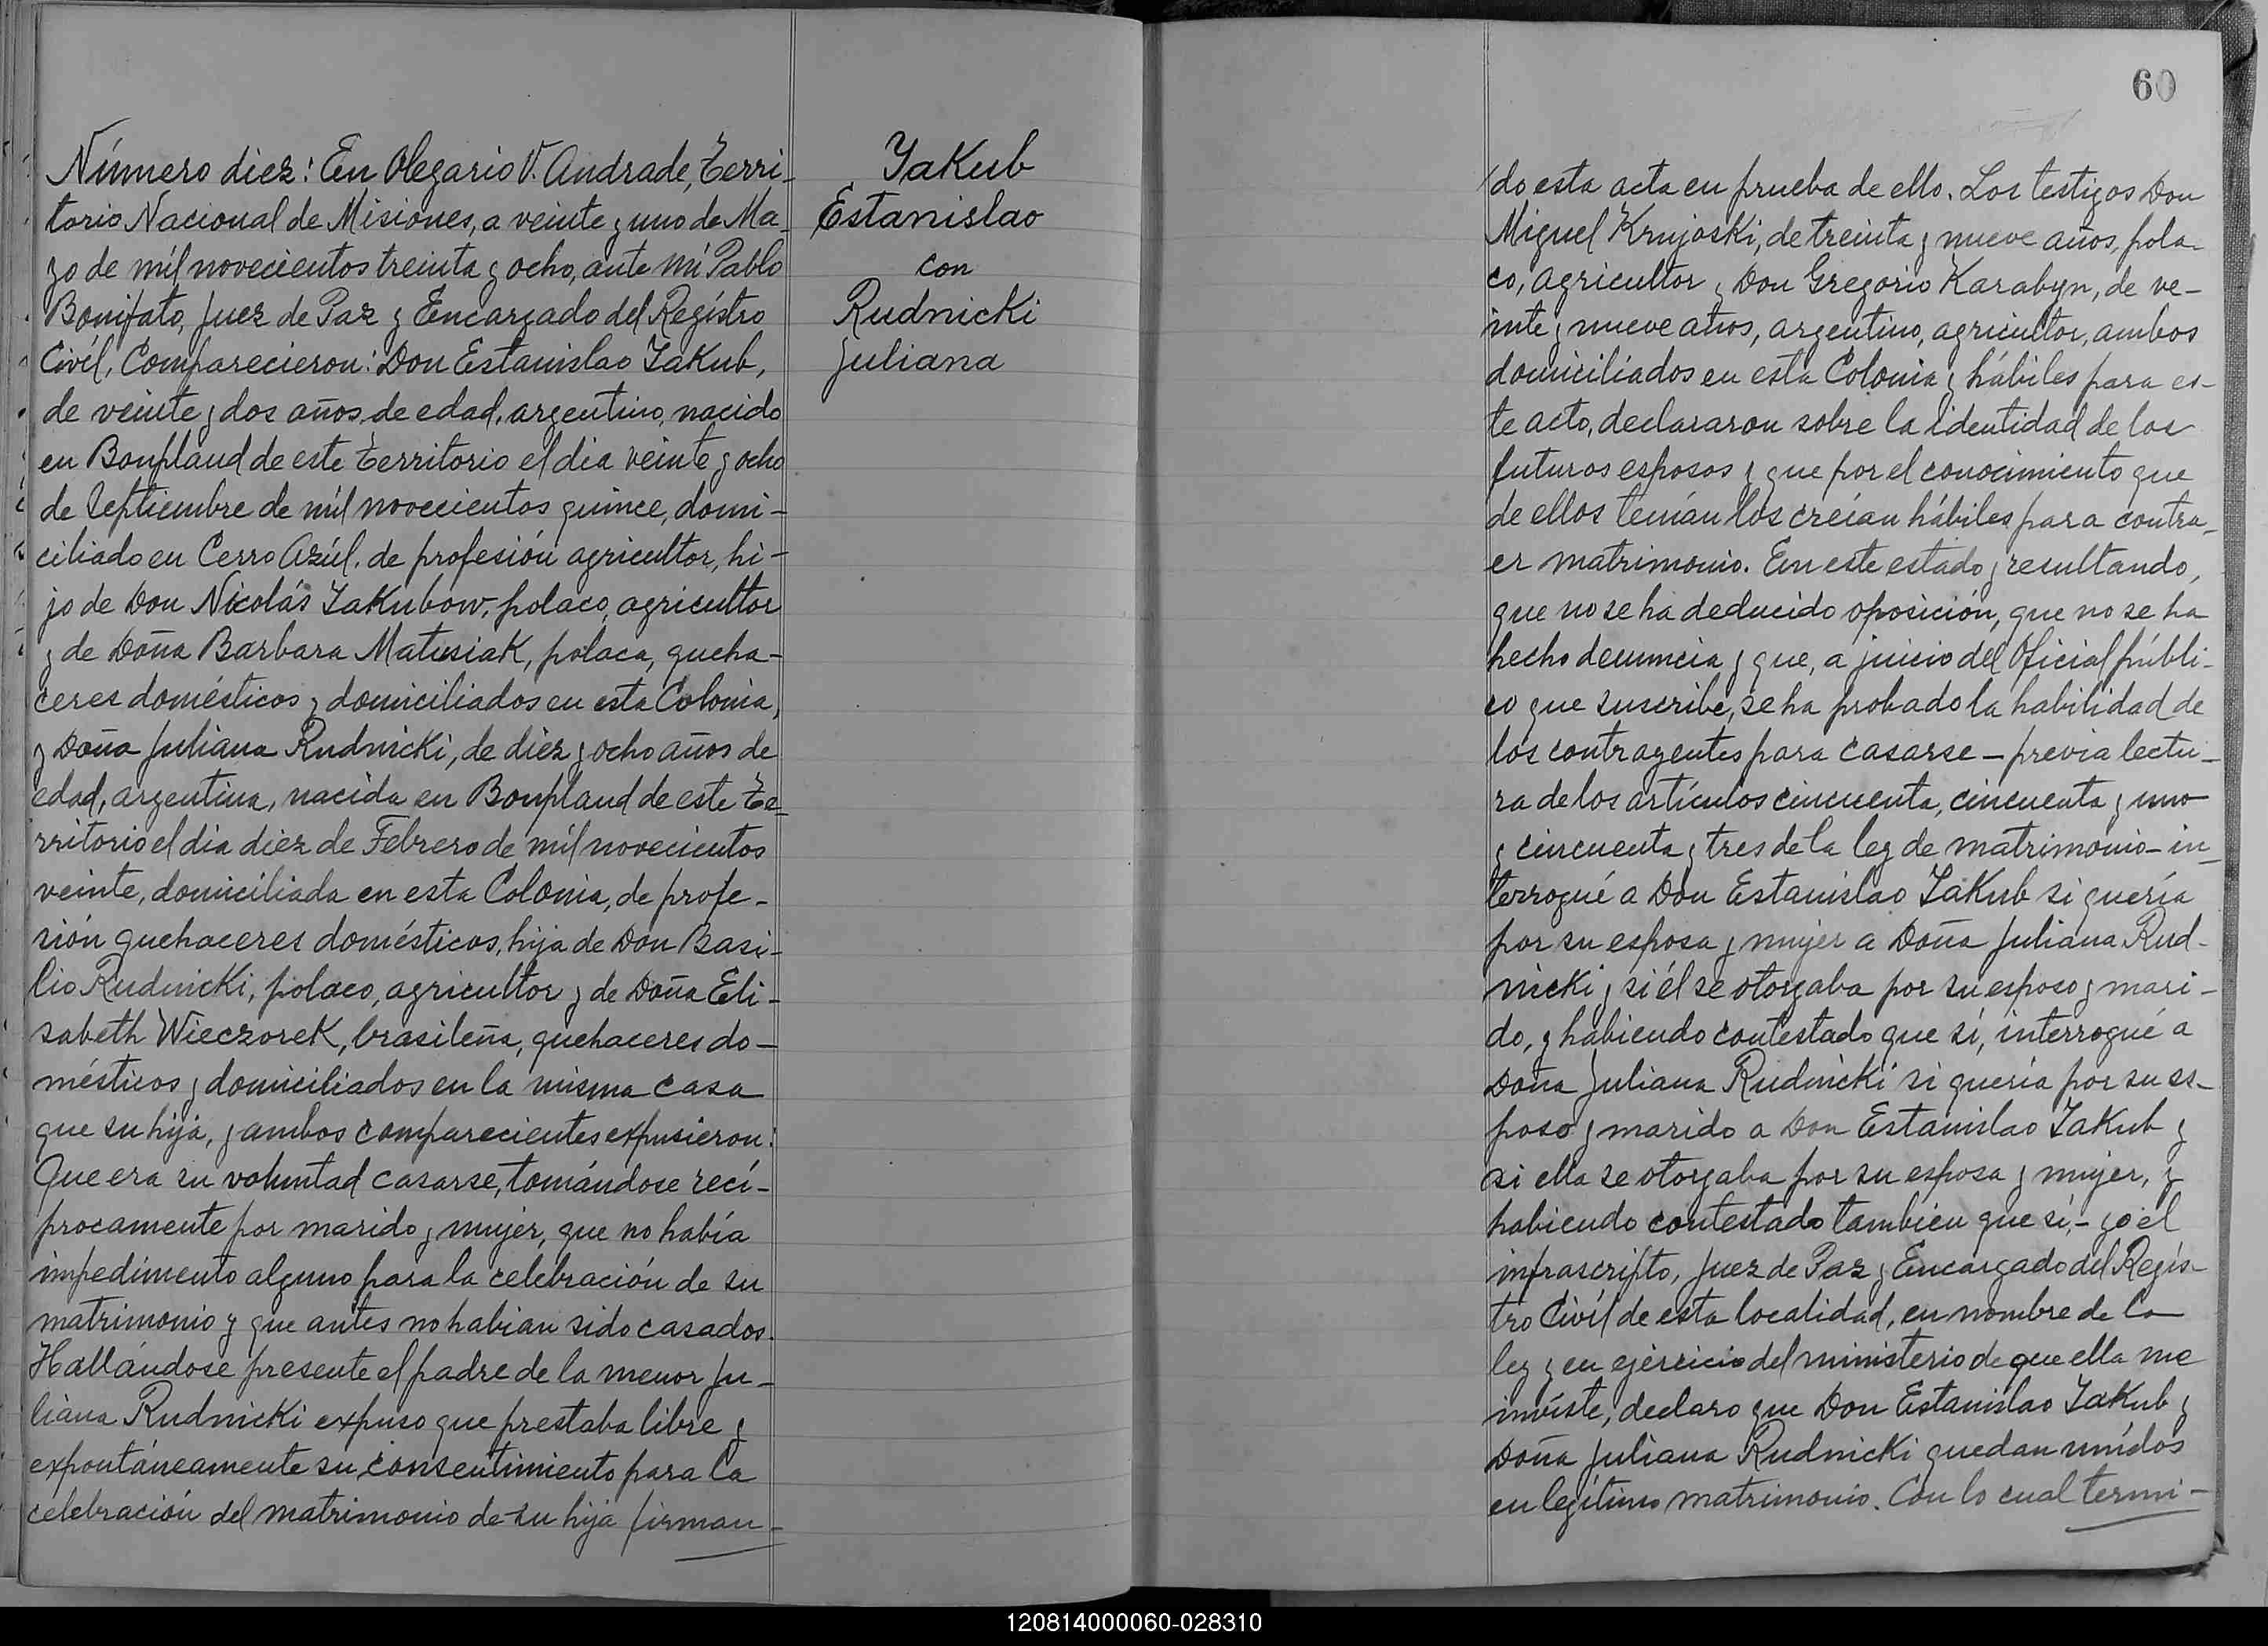 Número diez: En Olegario V. Andrade, Terri-
torio Nacional de Misiones, a veinte y uno de Ma-
yo de mil novecientos treinta y ocho, ante mí Pablo
Bonifato, Juez de Paz y Encargado del Regístro
Civíl, Comparecieron: Don Estanislao Yakub,
de veinte y dos años de edad, argentino, nacido
en Bonpland de este territorio el dia veinte y ocho
de Septiembre de mil novecientos quince, domi-
ciliado en Cerro Azúl, de profesión agricultor, hi-
jo de Don Nicolás Yakubow, polaco, agricultor
y de Doña Barbara Matusiak, polaca, queha-
ceres domésticos y domiciliados en esta Colonia,
y Doña Juliana Rudnicki, de diez y ocho años de
edad, argentina, nacida en Bonpland de este Te-
rritorio el dia diez de Febrero de mil novecientos
veinte, domiciliada en esta Colonia, de profe-
sión quehaceres domésticos, hija de Don Basi-
lio Rudnicki, polaco, agricultor y de Doña Eli-
sabeth Wieczorek, brasileña, quehaceres do-
mésticos y domiciliados en la misma casa
que su hija, y ambos comparecientes expusieron:
Que era su voluntad casarse, tomándose recí-
procamente por marido y mujer, que no había
impedimento alguno para la celebración de su
matrimonio y que antes no habian sido casados.
Hallándose presente el padre de la menor Ju-
liana Rudnicki expuso que prestaba libre y
expontáneamente su consentimiento para la
celebración del matrimonio de su hija firman-
Yakub
Estanislao
con
Rudnicki
Juliana
60
/do esta acta en prueba de ello. Los testigos Don
Miguel Krujoski, de treinta y nueve años, pola-
co, agricultor y Don Gregorio Karabyn, de ve-
inte y nueve años, argentino, agricultor, ambos
domiciliados en esta Colonia y hábiles para es-
te acto, declararon sobre la identidad de los
futuros esposos y que por el conocimiento que
de ellos tenían los creían hábiles para contra-
er matrimonio. En este estado y resultando,
que no se ha deducido oposición, que no se ha
hecho denuncia y que, a juicio del Oficial públi-
co que suscribe, se ha probado la habilidad de
los contrayentes para casarse - previa lectu-
ra de los artículos cincuenta, cincuenta y uno
y cincuenta y tres de la ley de matrimonio - in-
terrogué a Don Estanislao Yakub si quería
por su esposa y mujer a Doña Juliana Rud-
nicki y si él se otorgaba por su esposo y mari-
do, y habiendo contestado que sí, interrogué a
Doña Juliana Rudnicki si quería por su es-
poso y marido a Don Estanislao Yakub y
si ella se otorgaba por su esposa y mujer, y
habiendo contestado tambien que sí, - yo el
infrascripto, Juez de Paz y Encargado del Regís-
tro Civíl de esta localidad, en nombre de la
ley y en ejercicio del ministerio de que ella me
invíste, declaro que Don Estanislao Yakub y
Doña Juliana Rudnicki quedan unídos
en legítimo matrimonio. Con lo cual termi-
120814000060-028310